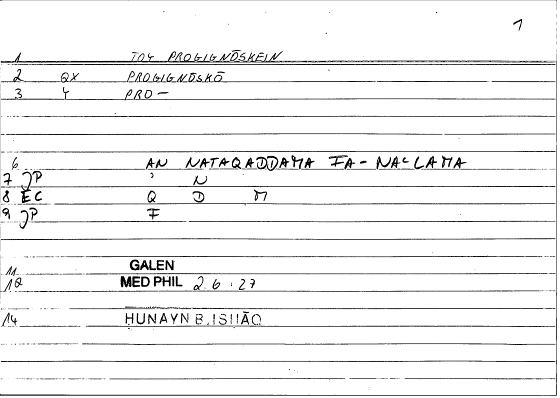 1
1 TOY PROGIGNŌSKEIN
2 QX PROGIGNŌSKŌ
3 Y PRO-
6 AN NATAQADDAMA FA-NAʿLAMA
7 JP ʾ N
8 EC Q D M
9 JP F
11 GALEN
12 MED PHIL 2 6 : 27
14 HUNAYN B. ISHĀQ